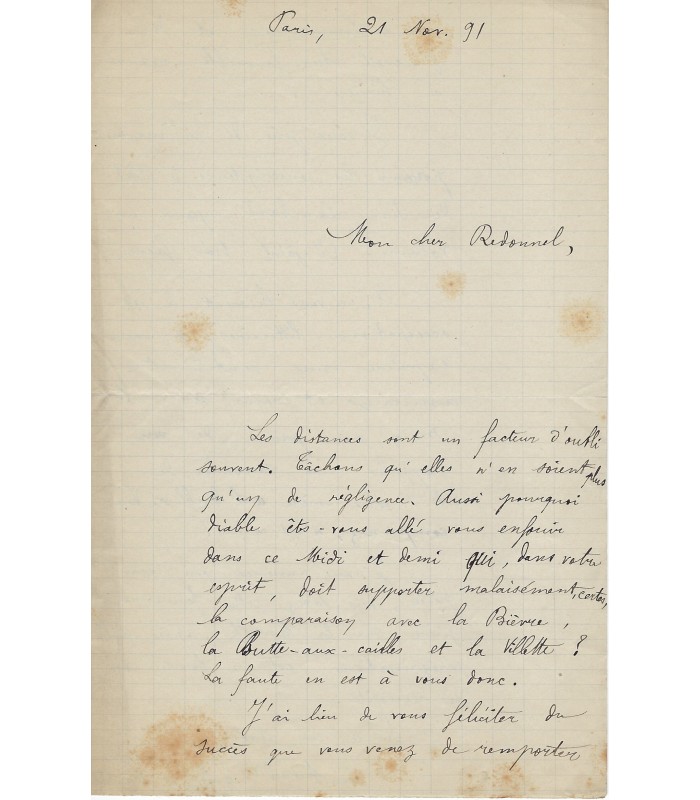 Paris, 21 Nov. 91
Mon cher Redonnel,
Les distances sont un facteur d'oubli
souvent. Tâchons qu'elles n'en soient plus
qu'un de négligence. Aussi pourquoi
diable êts-vous allé vous enfouir
dans ce Midi et demi qui, dans votre
esprit, doit supporter malaisément, certes,
la comparaison avec la Bièvre,
la Butte-aux-cailles et la Villette ?
La faute en est à vous donc.
J'ai lieu de vous féliciter du
succès que vous venez de remporter